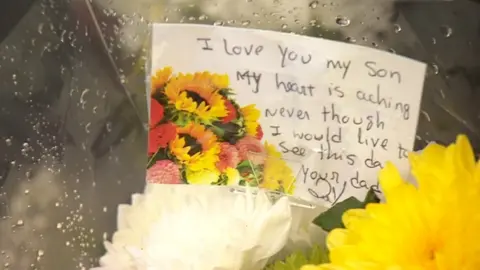 I love you my son
My heart is aching
never though
I would live to
see this da
your dad